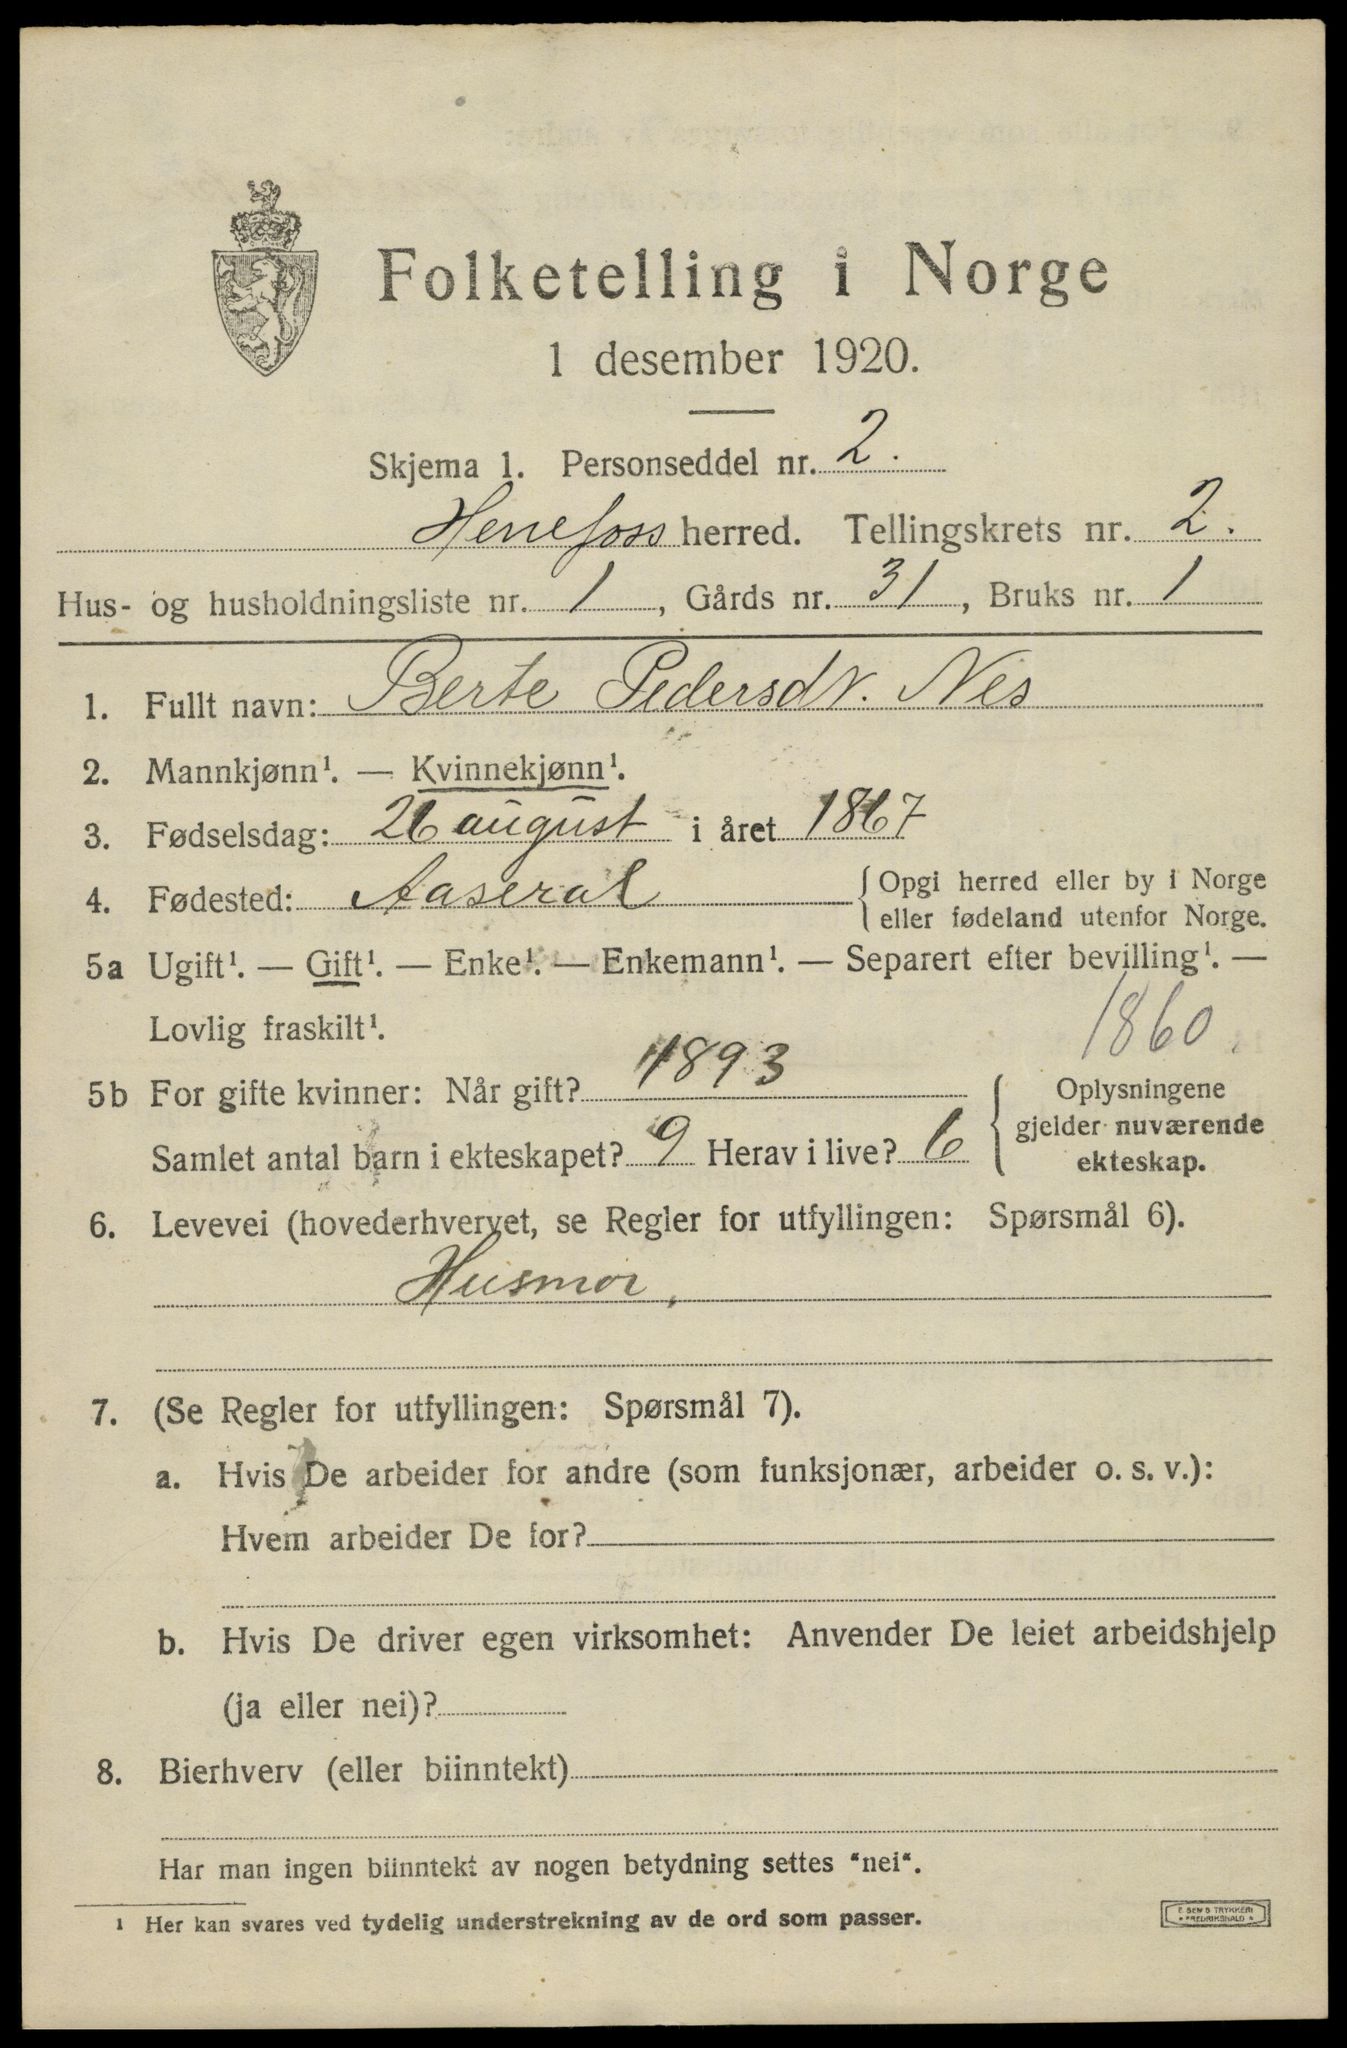 Folketelling i Norge
1 desember 1920.
Skjema 1. Personseddel nr. 2.
Herefoss herred. Tellingskrets nr. 2.
Hus- og husholdningsliste nr. 1, Gårds nr. 31, Bruks nr. 1
1. Fullt navn: Berte Pedersdtr. Nes
2. Mannkjønn¹. — Kvinnekjønn¹.
3. Fødselsdag: 26 august i året 1867
4. Fødested: Aaseral {Opgi herred eller by i Norge
eller fødeland utenfor Norge.
5a Ugift¹. — Gift¹. — Enke¹. — Enkemann¹. — Separert efter bevilling¹. —
Lovlig fraskilt¹. 1860
5b For gifte kvinner: Når gift? 1893
Samlet antal barn i ekteskapet? 9 Herav i live? 6
{Oplysningene
gjelder nuværende
ekteskap.
6. Levevei (hovederhvervet, se Regler for utfyllingen: Spørsmål 6).
Husmor,
7. (Se Regler for utfyllingen: Spørsmål 7).
a. Hvis De arbeider for andre (som funksjonær, arbeider o. s. v.):
Hvem arbeider De for?
b. Hvis De driver egen virksomhet: Anvender De leiet arbeidshjelp
(ja eller nei)?
8. Bierhverv (eller biinntekt)
Har man ingen biinntekt av nogen betydning settes "nei".
¹ Her kan svares ved tydelig understrekning av de ord som passer.
TRYKKERI
FREDRIKSHALD